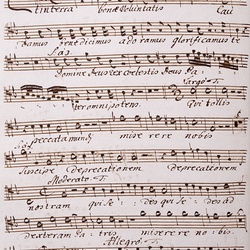 tinterra bonæ Voluntatis Lau
damus benedicimus adoramus glorificamus te
Domine deus rex celestis deus Pa
ter omnipotens. Largo Qui tollis
peccata mundi miserere nobis
suscipe deprecationem deprecationem
Moderato
nostram qui se des qui sedes ad
dexteram Patris miserere nobis.
Allegro